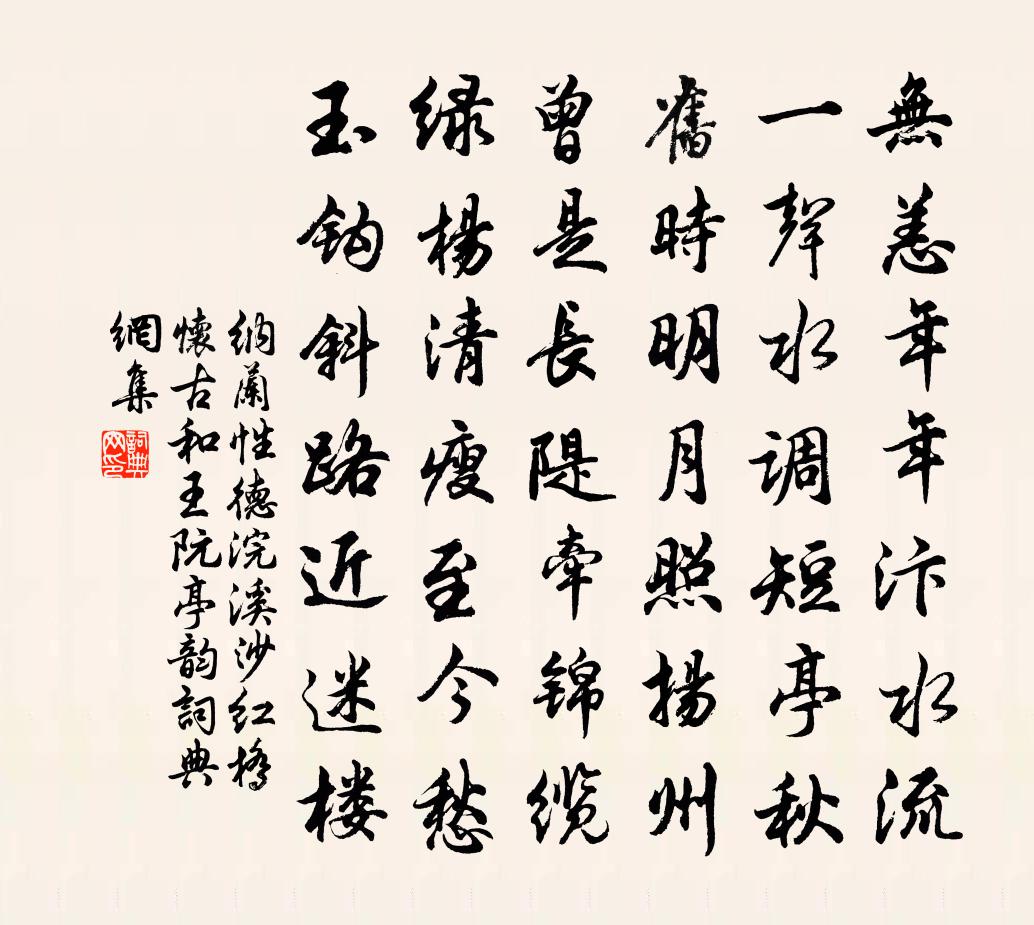 無恙年年汴水流
一聲水調短亭秋
舊時明月照揚州
曾是長隄牽錦缆
绿楊清瘦至今愁
玉鈎斜路近迷楼
納蘭性德浣溪沙紅橋
懷古和王阮亭韵詞典
網集
詞典网印